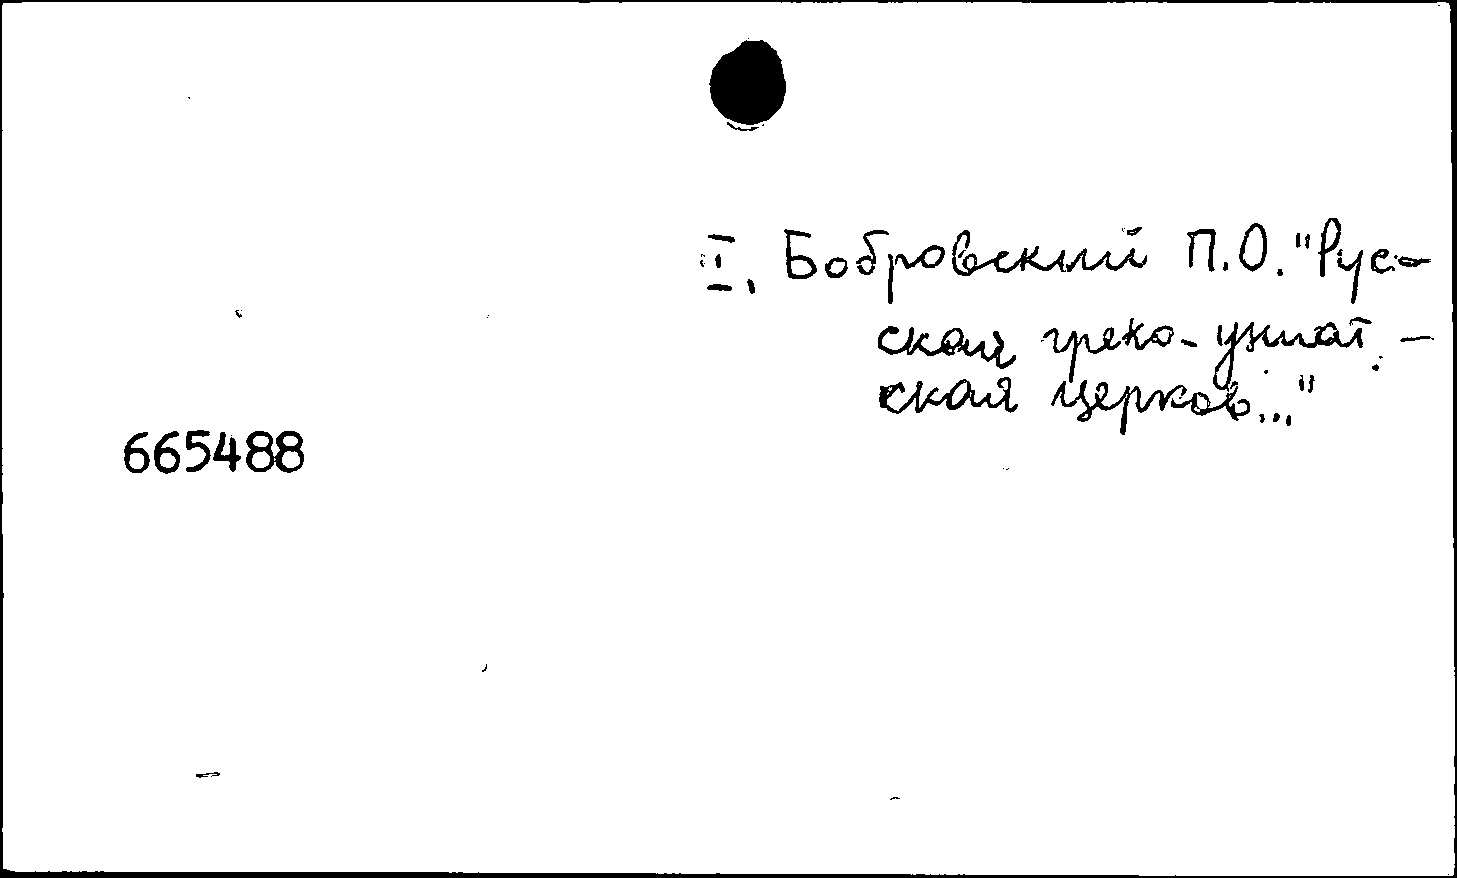 I. Бобровский П.О. "Рус-
ская греко-униат-
ская церков..."
665488